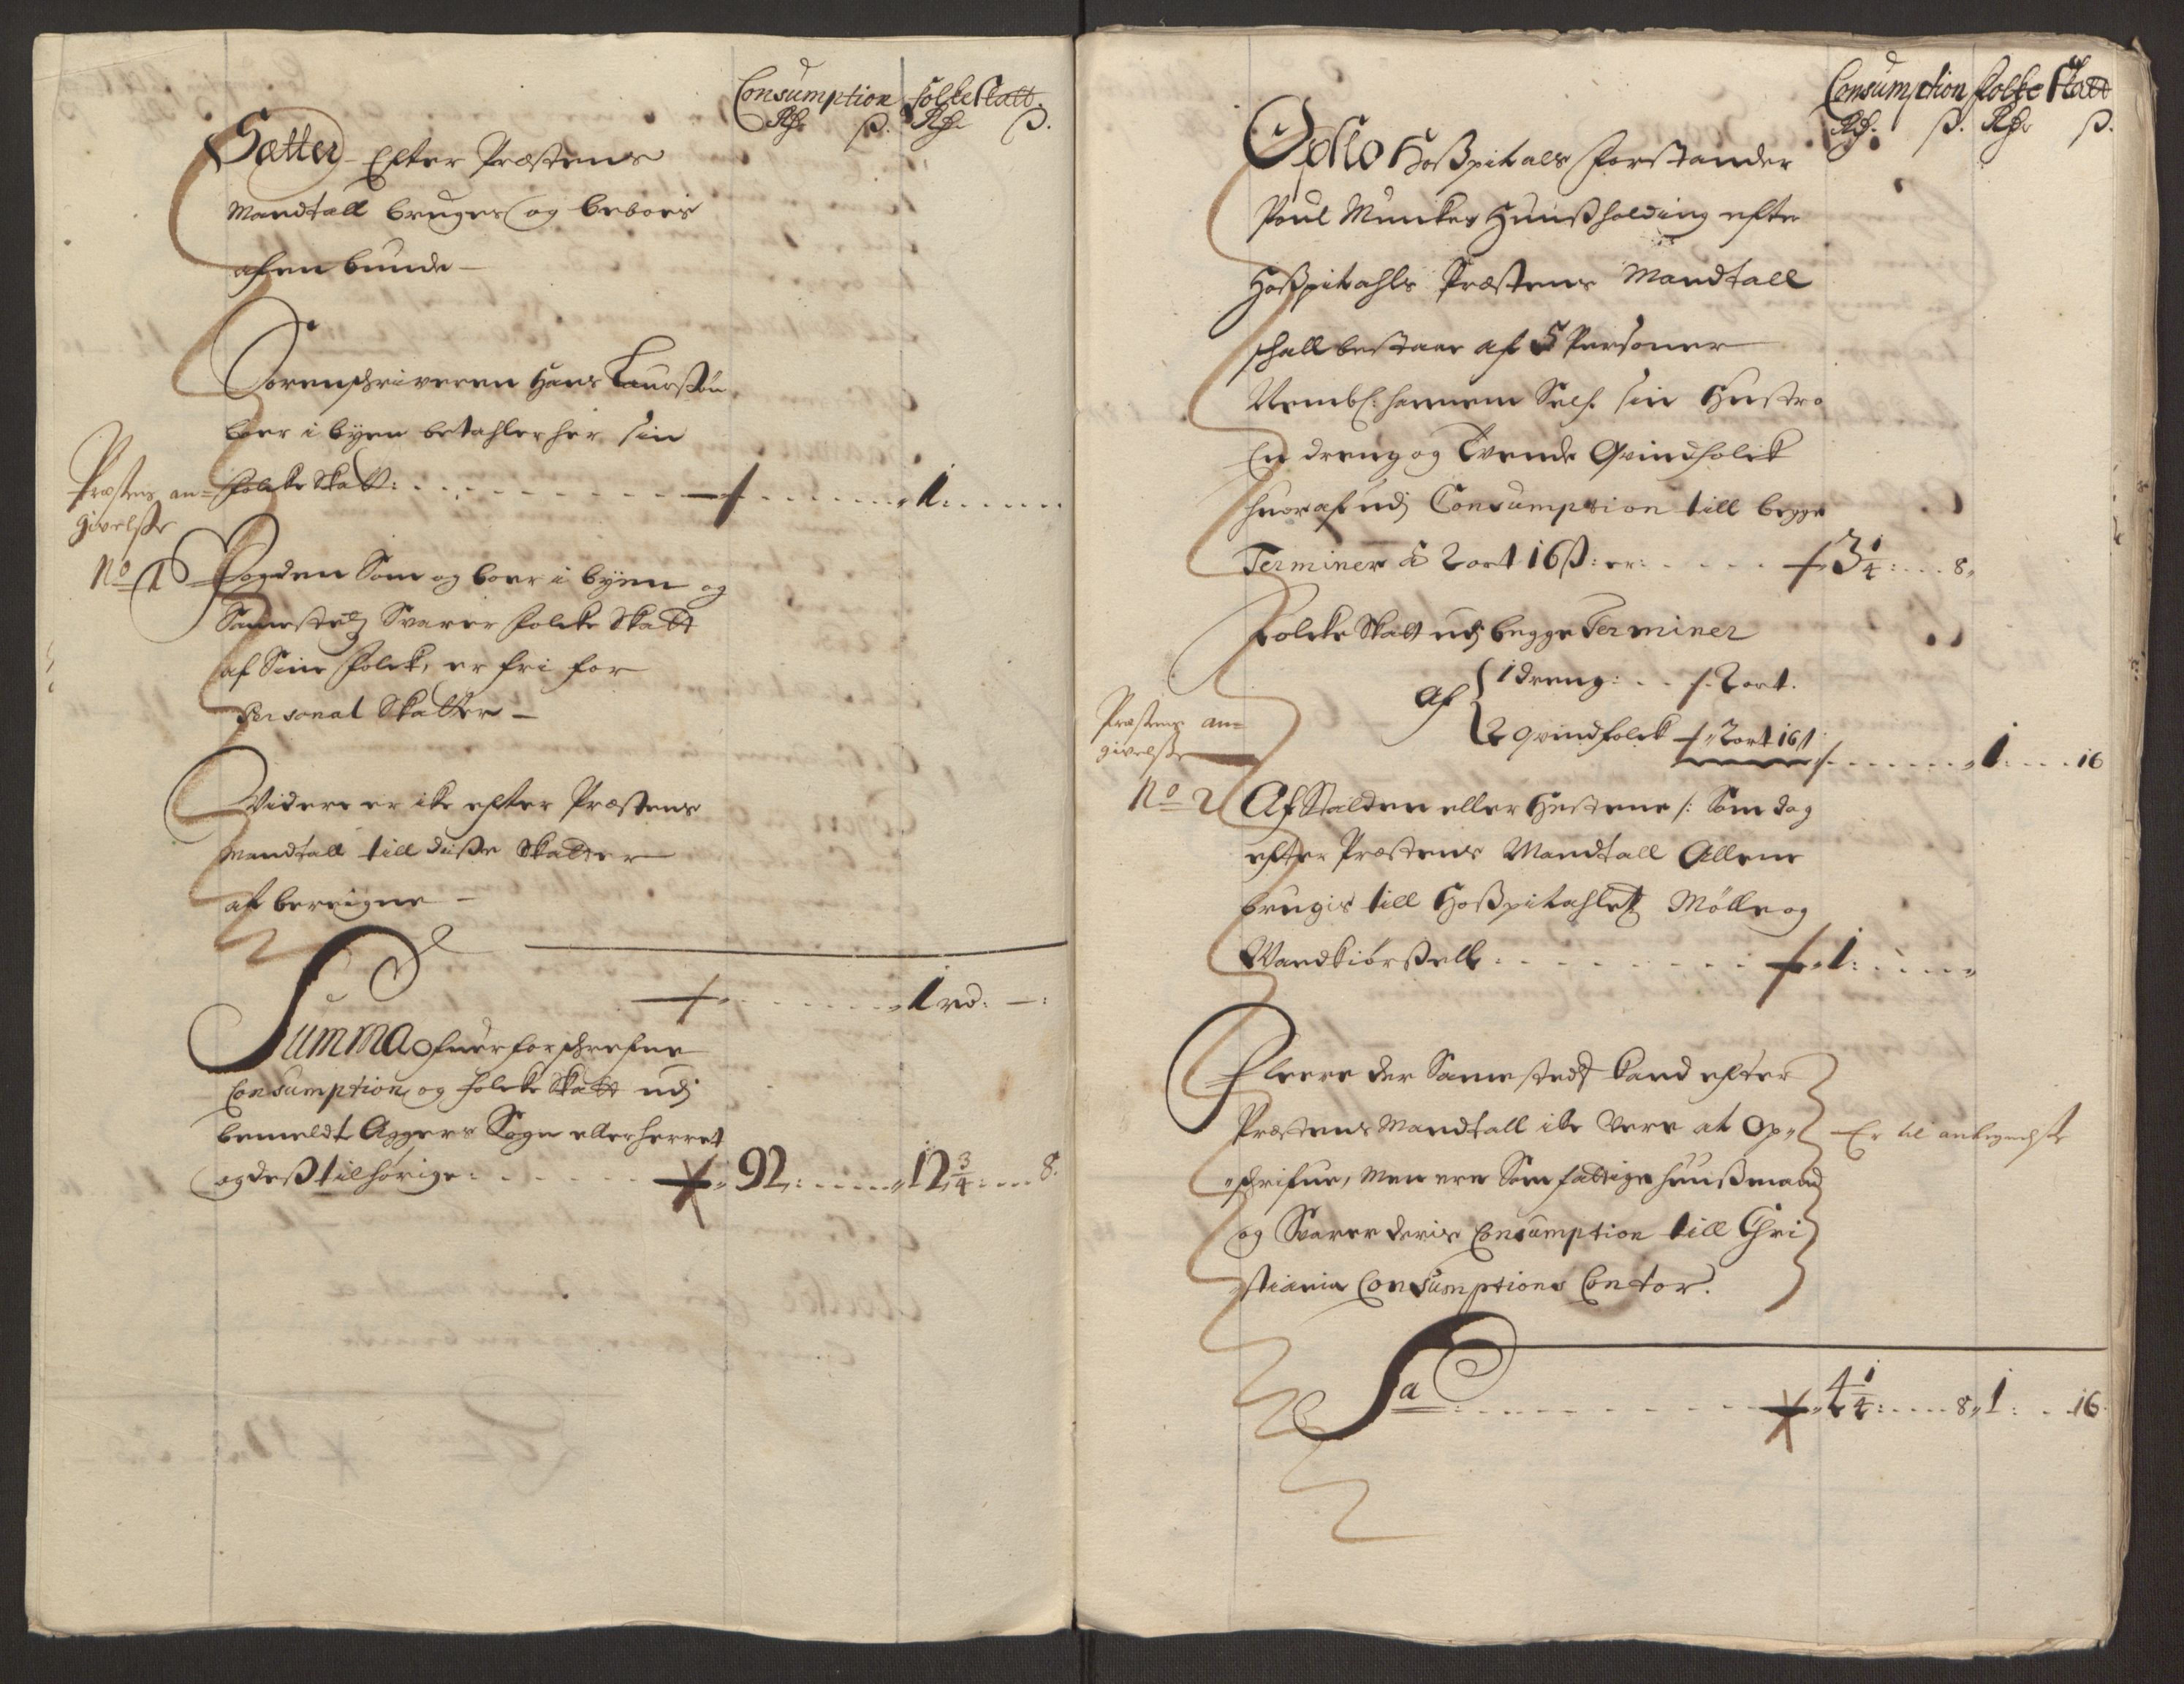 Consumption folke Skatt.
Rd. ß. Rd. ß.
Sætter Efter Præstens
Mandtall bruges og beboes
af en bunde
Sorenschriveren Hans Laursøn
boer i byen betahler her sin
folcke Skatt: 1:
Præstens an=
givelse
No 1
Fogden Som og boer i byen og
Samesteds Svarer folcke Skatt
af Sine folck, er fri for
Personal Skatter
Videre er ike efter Præstens
Mandtall till disse Skatter
at bereigne
1 rd: —:
Summa ofuer forschrefne
Consumption og folcke Skatt udj
bemeldte Aggers Sogn eller herret
og dess tilhörige: 92: 12 3/4: 8.
Consumption folke Skatt
Rd. ß. Rd. ß.
Opslo Hosspitals forstander
Poul Munkes Huussholding efter
Hosspitahls Præstens Mandtall
schall bestaar af 5 Personer
Nembl: hannem Self. sin Hustro
En dreng og tvende Qvindfolck
huoraf udj Consumption till begge
Terminer à 2 ort 16 ß: er: 3 1/4: 8
folcke Skatt udj begge Terminer
Af { 1 dreng: 2 ort.
2 qvindfolck 2 ort 16 ß 1: 16
Præstens an=
givelse
No 2
Af Stalden eller Hestene /: Som dog
efter Præstens Mandtall Allene
brugis till Hosspitahletz Mölle og
Vandkiörsell: 1:
Fleere der Samesteds kand efter
Præstens Mandtall ike Vere at Op=
schrifue, Men ere Som fattige huussmænd
og Svarer deris Consumption till Chri
stiania Consumptions Contor.
Er til
Sa 4 1/4: 8 1: 16